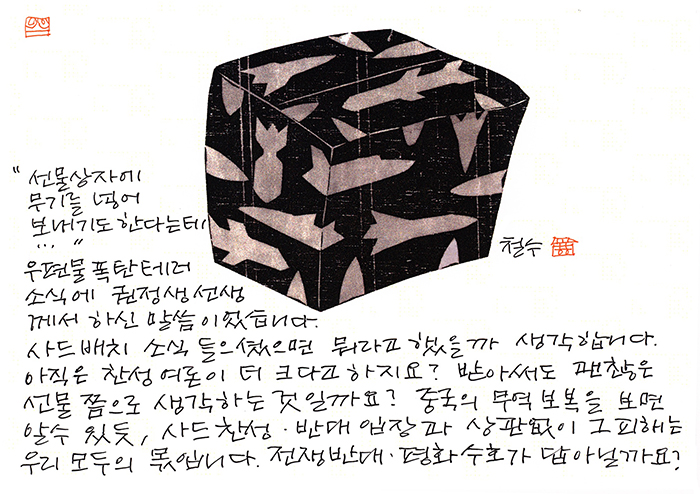 " 선물상자에
무기를 넣어
보내기도 한다는데
... "
우편물 폭탄테러
소식에 권정생선생
께서 하신 말씀이었습니다.
철수
사드배치 소식 들으셨으면 뭐라고 했을까 생각합니다.
아직은 찬성여론이 더 크다고 하지요? 받아써도 괜찮은
선물쯤으로 생각하는 것일까요? 중국의 무역보복을 보면
알수 있듯, 사드찬성·반대 입장과 상관없이 그피해는
우리 모두의 몫입니다. 전쟁반대·평화수호가 답아닐까요?